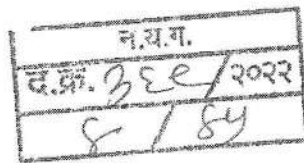 न.य.ग.
द.क्र. ३६९/२०२२
८ / ४५